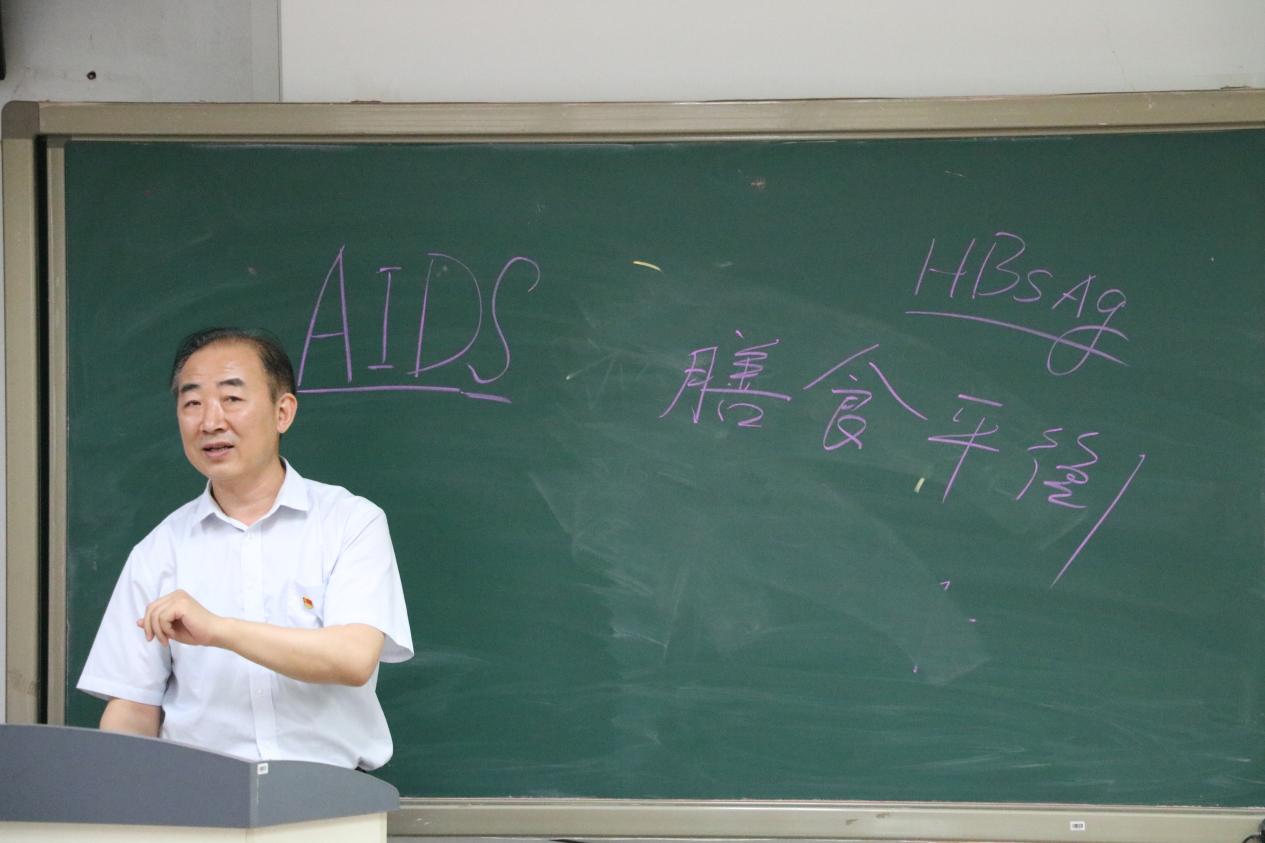 AIDS
HBsAg
膳食平衡